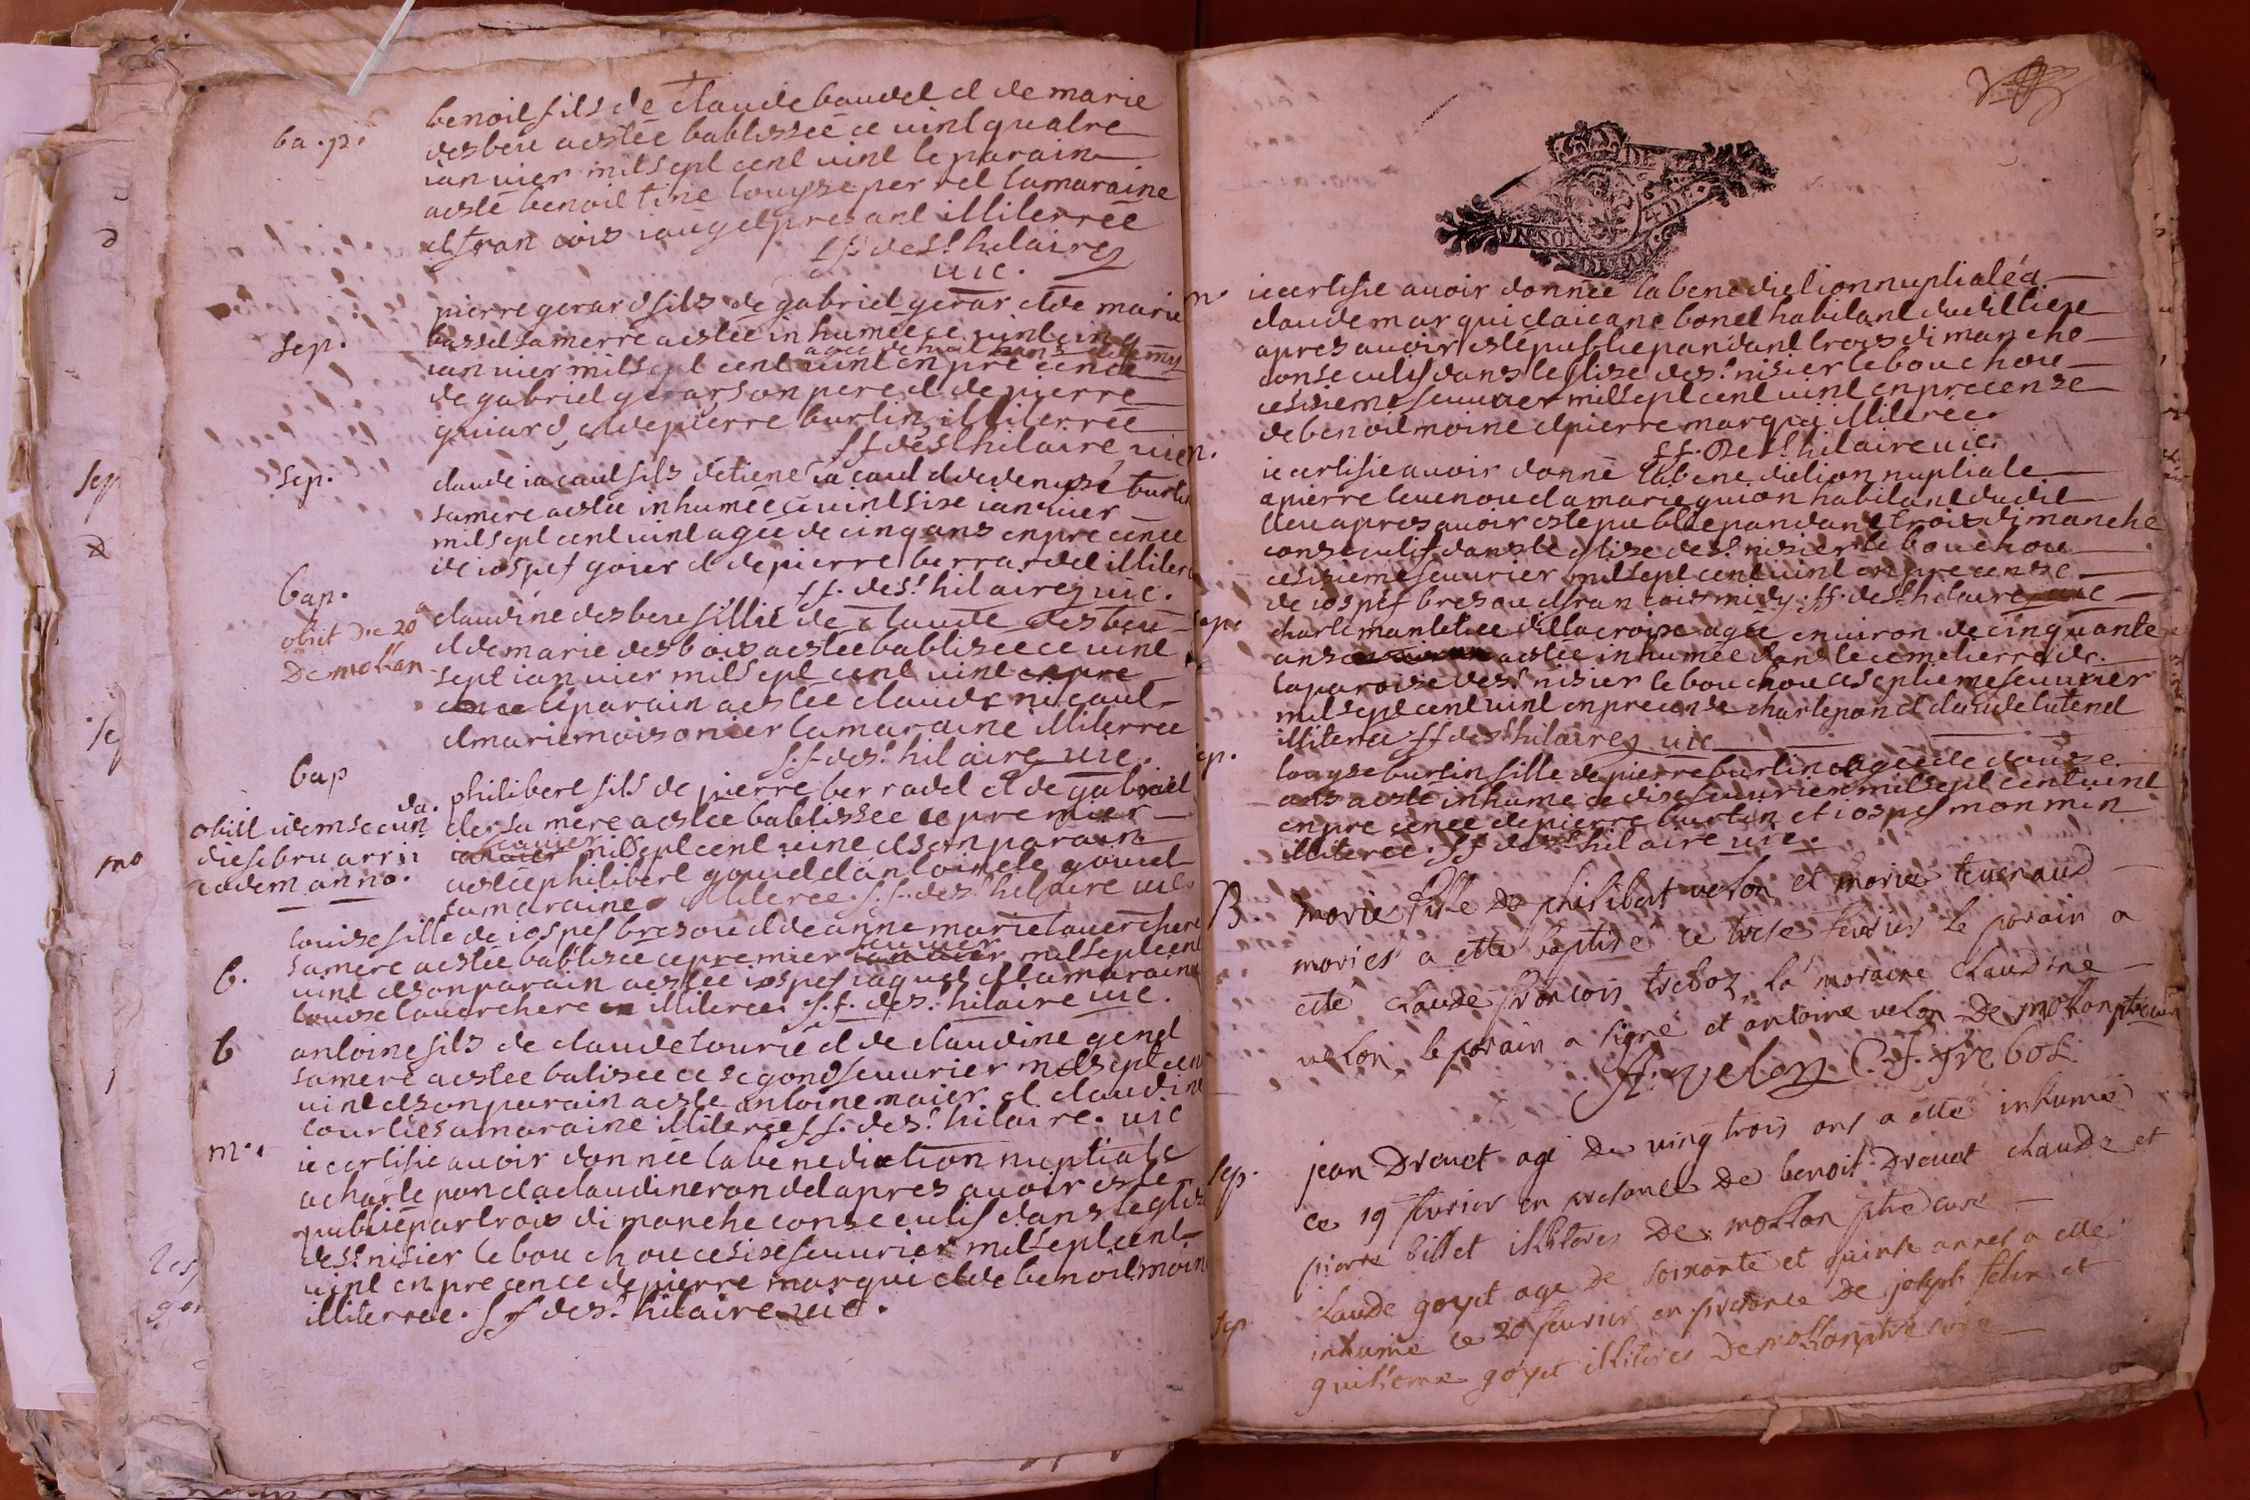 ba.p.
benoit fils de claude baudel et de marie
desbeu aestée bablissée ce vint quatre
ianuier mil sept cent vint le parain
aesté benoit tine louyse perrel la maraine
et francois iauget presant illiterrée
ff de st hilaire
uic.
sep.
pierre gerard fils de gabriel gerar et de marie
basset sa merre aestée inhumée ce vint cinq
agée de huit
ianuier mil sept cent vint en precence
de gabriel gerar son pere et de pierre
guiard et de pierre burtin illiterrée
ff de st hilaire uic
sep.
claude iacaut fils detiene iacaut et de denyse burtin
sa mere aestée inhumée ce vint sise ianuier
mil sept cent vint agée de cinq ans en precence
de iospef goier et de pierre berrardet illiter
ff. de st hilaire uic.
bap.
obiit die 20
De mollan
claudine desbeu fillie de claude desbeu
et de marie desbois aestée bablisée ce vint
sept ianuier mil sept cent vint en pre
cence le parain aestée claude nicaut
et marie moisonier la maraine illiterree
ff de st hilaire uic.
bap
obiit idem secun
da.
die febru arrii
eadem anno.
philibert fils de pierre berradet et de gabriel
der sa mere aestée bablissée ce premier
feuuier
ianuier mil sept cent vint et son parain
aestée philibert gouiel et antoinete gouiel
sa maraine illiteree. ff. de st hilaire uic
b.
louise fille de iospef bresou et de anne marie lauerchere
sa mere aestée bablisée ce premier ianuier mil sept cent
feuuier
vint et son parain aestée iospef iaquet et la maraine
louise lauerchere illiteree. ff. de st hilaire uic.
b
antoine fils de claude tourie et de claudine genet
sa mere aestée batisée ce segond feuurier mil sept cen
vint et son parain aeste antoine maier et claudine
tourlie sa maraine illiteree ff. de st hilaire. uic
m.
ie certifie auoir donnée la benediction nuptiale
a charle pon et a claudine rondet apres auoir este
publiée par trois dimanche consecutif dans leglis
de st nisier le bouchou ce sise feuurier mil sept cent
vint en precence de pierre marqui et de benoit moin
illiterree. ff de st hilaire uic.
m
ie certifie auoir donnée la benediction nuptiale a
claude marqui et a icane bonet habitant dudit lieu
apres auoir esté publie pandant trois dimanche
consecutif dans leglise de st nisier le bouchou
ce sisieme feuurier mil sept cent vint en precense
de benoit moine et pierre marqui illiterée.
ff. de st hilaire uic.
m.
ie certifie auoir donné la benediction nuptiale
a pierre teuenou et a marie guion habitant dudit
lieu apres auoir este publiée pandant trois dimanche
consecutif dans leglise de st nisier le bouchou
ce sisieme feuurier mil sept cent vint en precense
de iospef bresou et francois midy. ff. de st hilaire uic
sep.
charle mantel agée enuiron de cinquante
ans aestée inhumée dans le cemetierre de
la paroise de st nisier le bouchou ce septieme feuurier
mil sept cent vint en precense charle pon et claude lutenet
illiteree ff de st hilaire uic
sep.
louyse burtin fille de pierre burtin agée de douse
ans aeste inhume ce dise feuurier mil sept cent vint
en precence de pierre burtin et iospef monmin
illiteree. ff de st hilaire uic.
B.
marie fille de philibert velon et marie teuenaud
mariés a etté baptisé ce trese feurier le parain a
eté claude françois trebos, la maraine claudine
velon, le parain a signé et antoine velon De mollan ptre curé
A. velon C. f. trebos
sep.
jean Drevet agé de ving trois ans a etté inhumé
ce 19 feurier en presance de benoit Drevet claude et
pierre billet illiterés De mollan ptre curé
sep
claude goyet age de soixante et quinse annés a etté
inhumé ce 20 feurier en presance de joseph felix et
guilleme goyet illiterés De mollan ptre curé